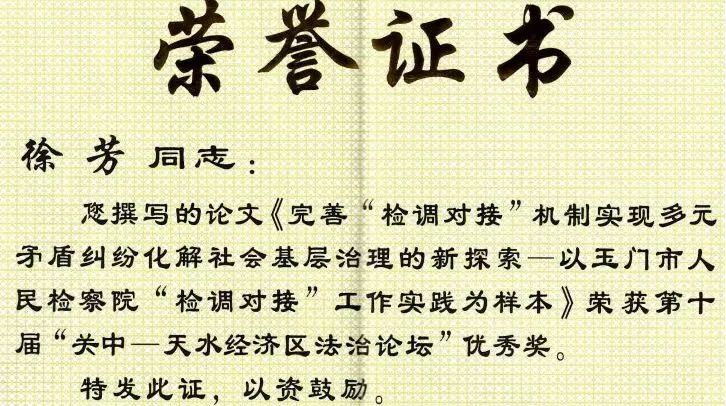 荣誉证书
徐芳同志：
您撰写的论文《完善“检调对接”机制实现多元
矛盾纠纷化解社会基层治理的新探索—以玉门市人
民检察院“检调对接”工作实践为样本》荣获第十
届“关中—天水经济区法治论坛”优秀奖。
特发此证，以资鼓励。